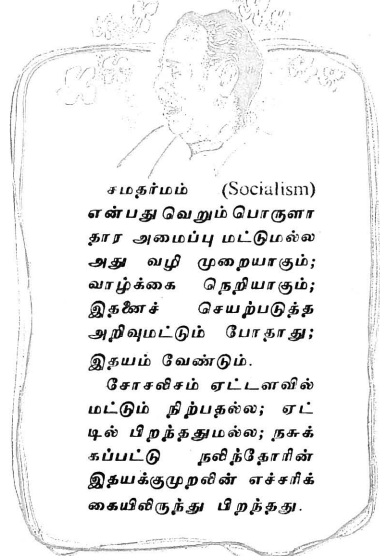 சமதர்மம் (Socialism)
என்பது வெறும் பொருளா
தார அமைப்பு மட்டுமல்ல
அது வழி முறையாகும்;
வாழ்க்கை நெறியாகும்;
இதனைச் செயற்படுத்த
அறிவுமட்டும் போதாது;
இதயம் வேண்டும்.
சோசலிசம் ஏட்டளவில்
மட்டும் நிற்பதல்ல; ஏட்
டில் பிறந்ததுமல்ல; நசுக்
கப்பட்டு நலிந்தோரின்
இதயக்குமுறலின் எச்சரிக்
கையிலிருந்து பிறந்தது.